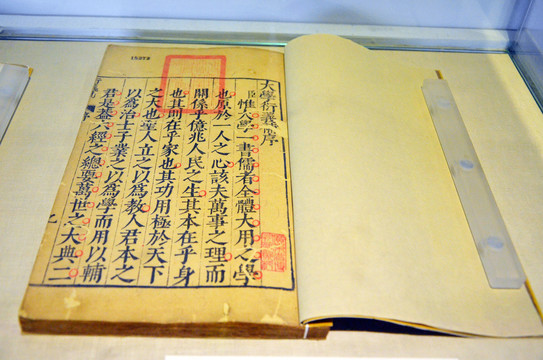 大學衍義序
臣惟大學一書儒者全體大用之學
也原於一人之心該夫萬事之理而
關係乎億兆人民之生其本在乎身
也其則在乎家也其功用極於天下
之大也聖人立之以為教人君本之
以為治士子業之以為學而用以輔
君是蓋六經之總要萬世之大典二